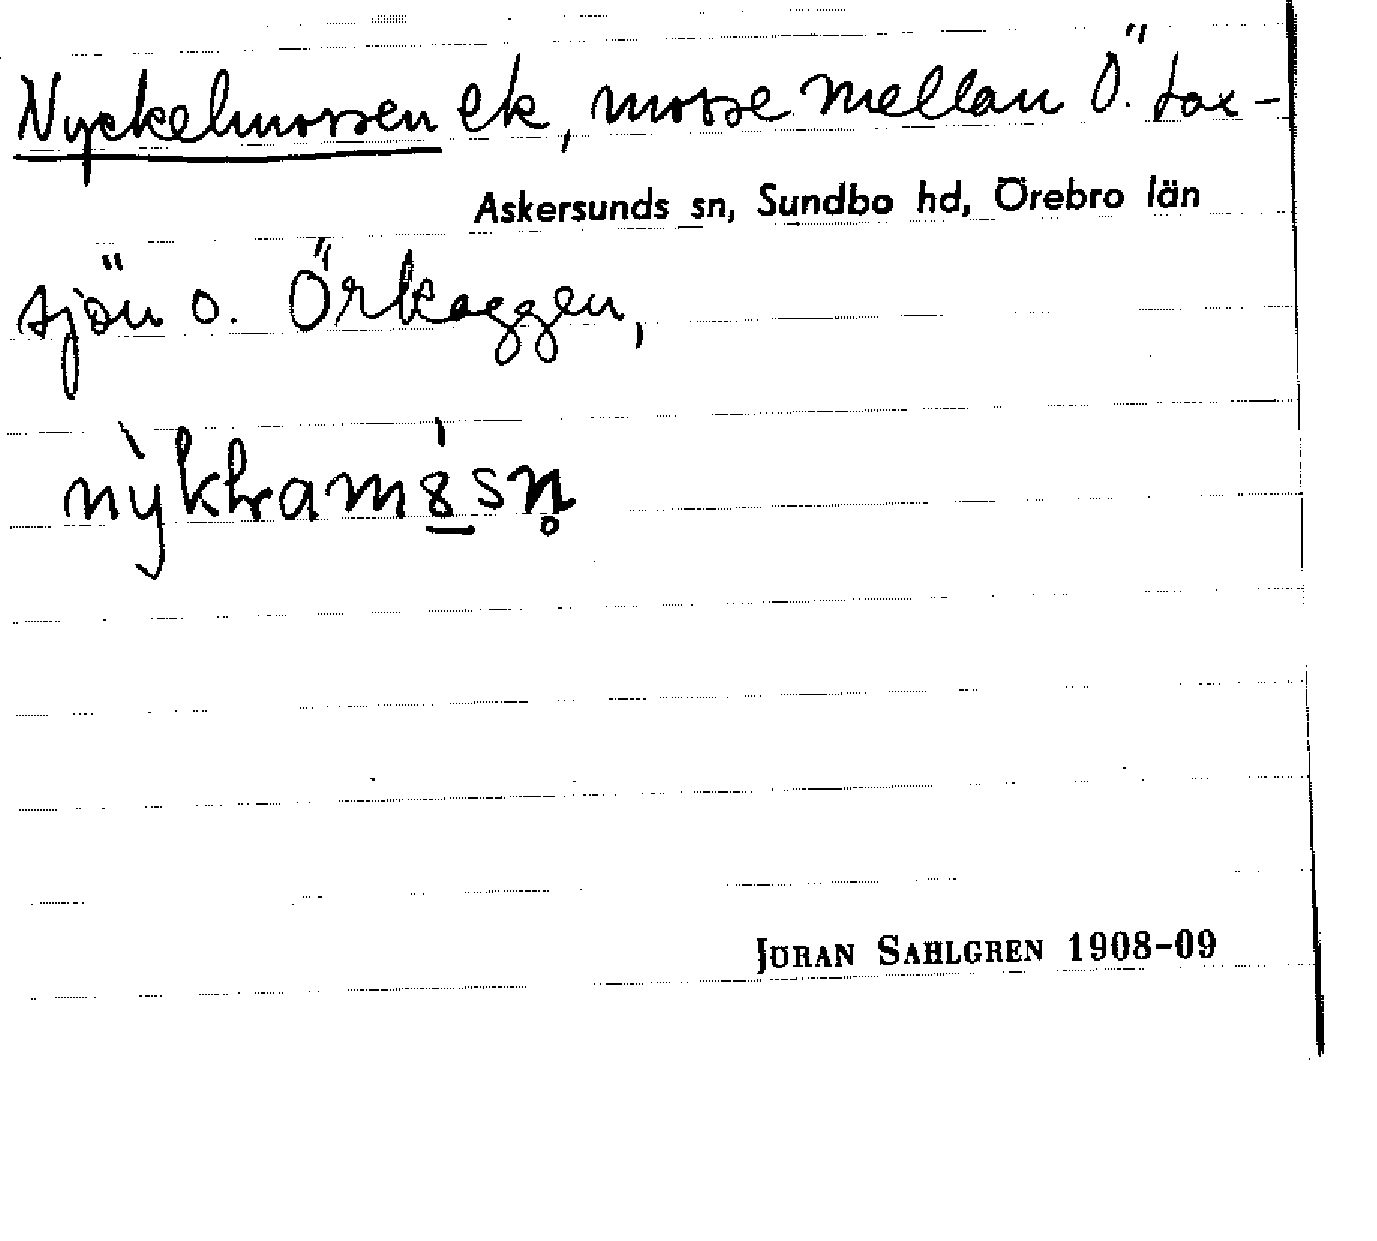 Nyckelmossen ek, mosse mellan Ö. Lax-
Askersunds sn, Sundbo hd, Örebro län
sjön o. Örkaggen,
JÖRAN SAHLGREN 1908-09